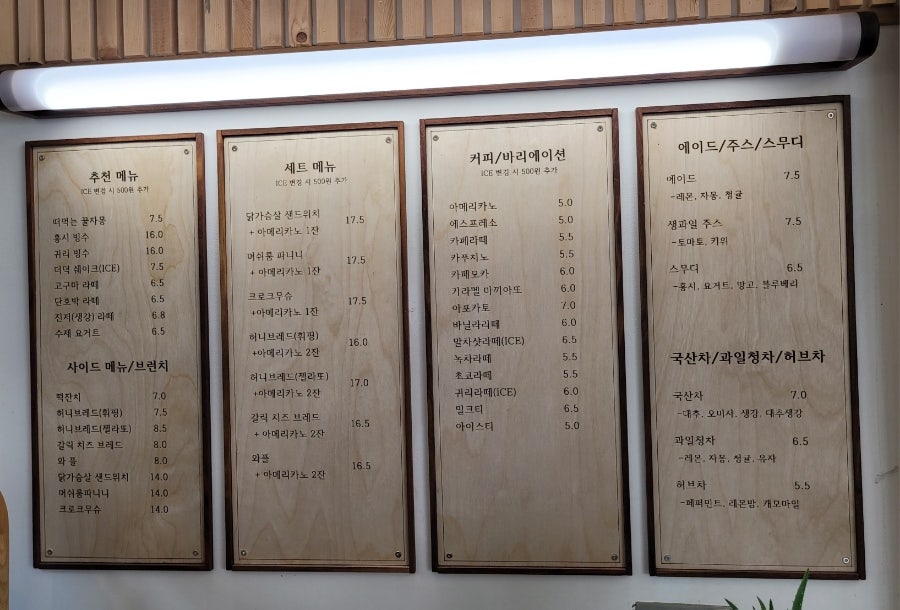 추천 메뉴
ICE 변경 시 500원 추가
떠먹는 꿀자몽 7.5
홍시 빙수 16.0
귀리 빙수 16.0
더덕 쉐이크(ICE) 7.5
고구마 라떼 6.5
단호박 라떼 6.5
진저(생강) 라떼 6.8
수제 요거트 6.5
사이드 메뉴/브런치
떡잔치 7.0
허니브레드(휘핑) 7.5
허니브레드(젤라또) 8.5
갈릭 치즈 브레드 8.0
와 플 8.0
닭가슴살 샌드위치 14.0
머쉬룸파니니 14.0
크로크무슈 14.0
세트 메뉴
ICE 변경 시 500원 추가
닭가슴살 샌드위치 17.5
+ 아메리카노 1잔
머쉬룸 파니니 17.5
+ 아메리카노 1잔
크로크무슈 17.5
+아메리카노 1잔
허니브레드(휘핑) 16.0
+아메리카노 2잔
허니브레드(젤라또) 17.0
+아메리카노 2잔
갈릭 치즈 브레드 16.5
+ 아메리카노 2잔
와플 16.5
+ 아메리카노 2잔
커피/바리에이션
ICE 변경 시 500원 추가
아메리카노 5.0
에스프레소 5.0
카페라떼 5.5
카푸치노 5.5
카페모카 6.0
카라멜 마끼아또 6.0
아포카토 7.0
바닐라라떼 6.0
말차샷라떼(ICE) 6.5
녹차라떼 5.5
초코라떼 5.5
귀리라떼(ICE) 6.0
밀크티 6.5
아이스티 5.0
에이드/주스/스무디
에이드 7.5
-레몬, 자몽, 청귤
생과일 주스 7.5
-토마토, 키위
스무디 6.5
-홍시, 요거트, 망고, 블루베리
국산차/과일청차/허브차
국산차 7.0
-대추, 오미자, 생강, 대추생강
과일청차 6.5
-레몬, 자몽, 청귤, 유자
허브차 5.5
-페퍼민트, 레몬밤, 캐모마일